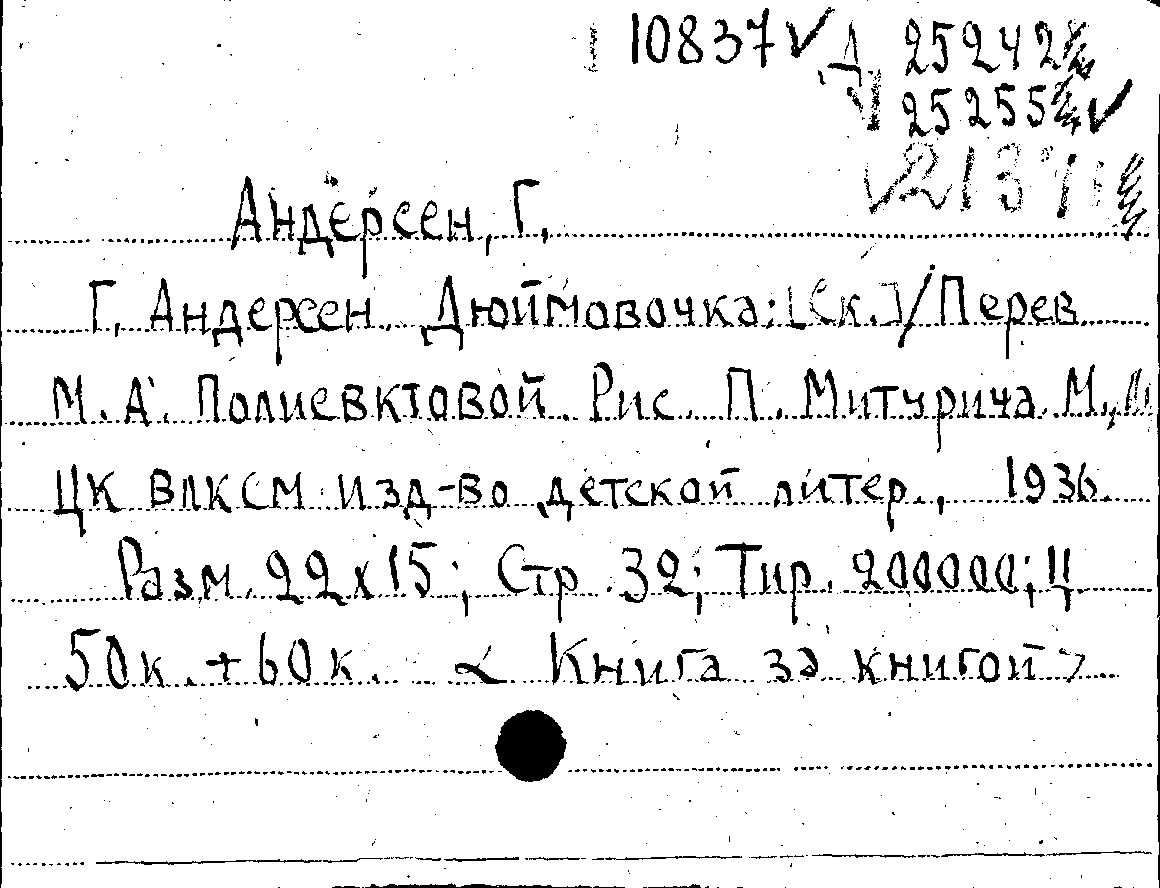 10837 ✓ Д 25242
25255 ✓
Андерсен, Г.
Г. Андерсен. Дюймовочка: [Ск.] / Перев
М. А. Полиевктовой. Рис. П. Митурича. М.,
ЦК ВЛКСМ изд-во детской литер., 1936.
Разм. 22х15; Стр. 32; Тир. 200000; Ц.
50к. + 60к. < Книга за книгой >